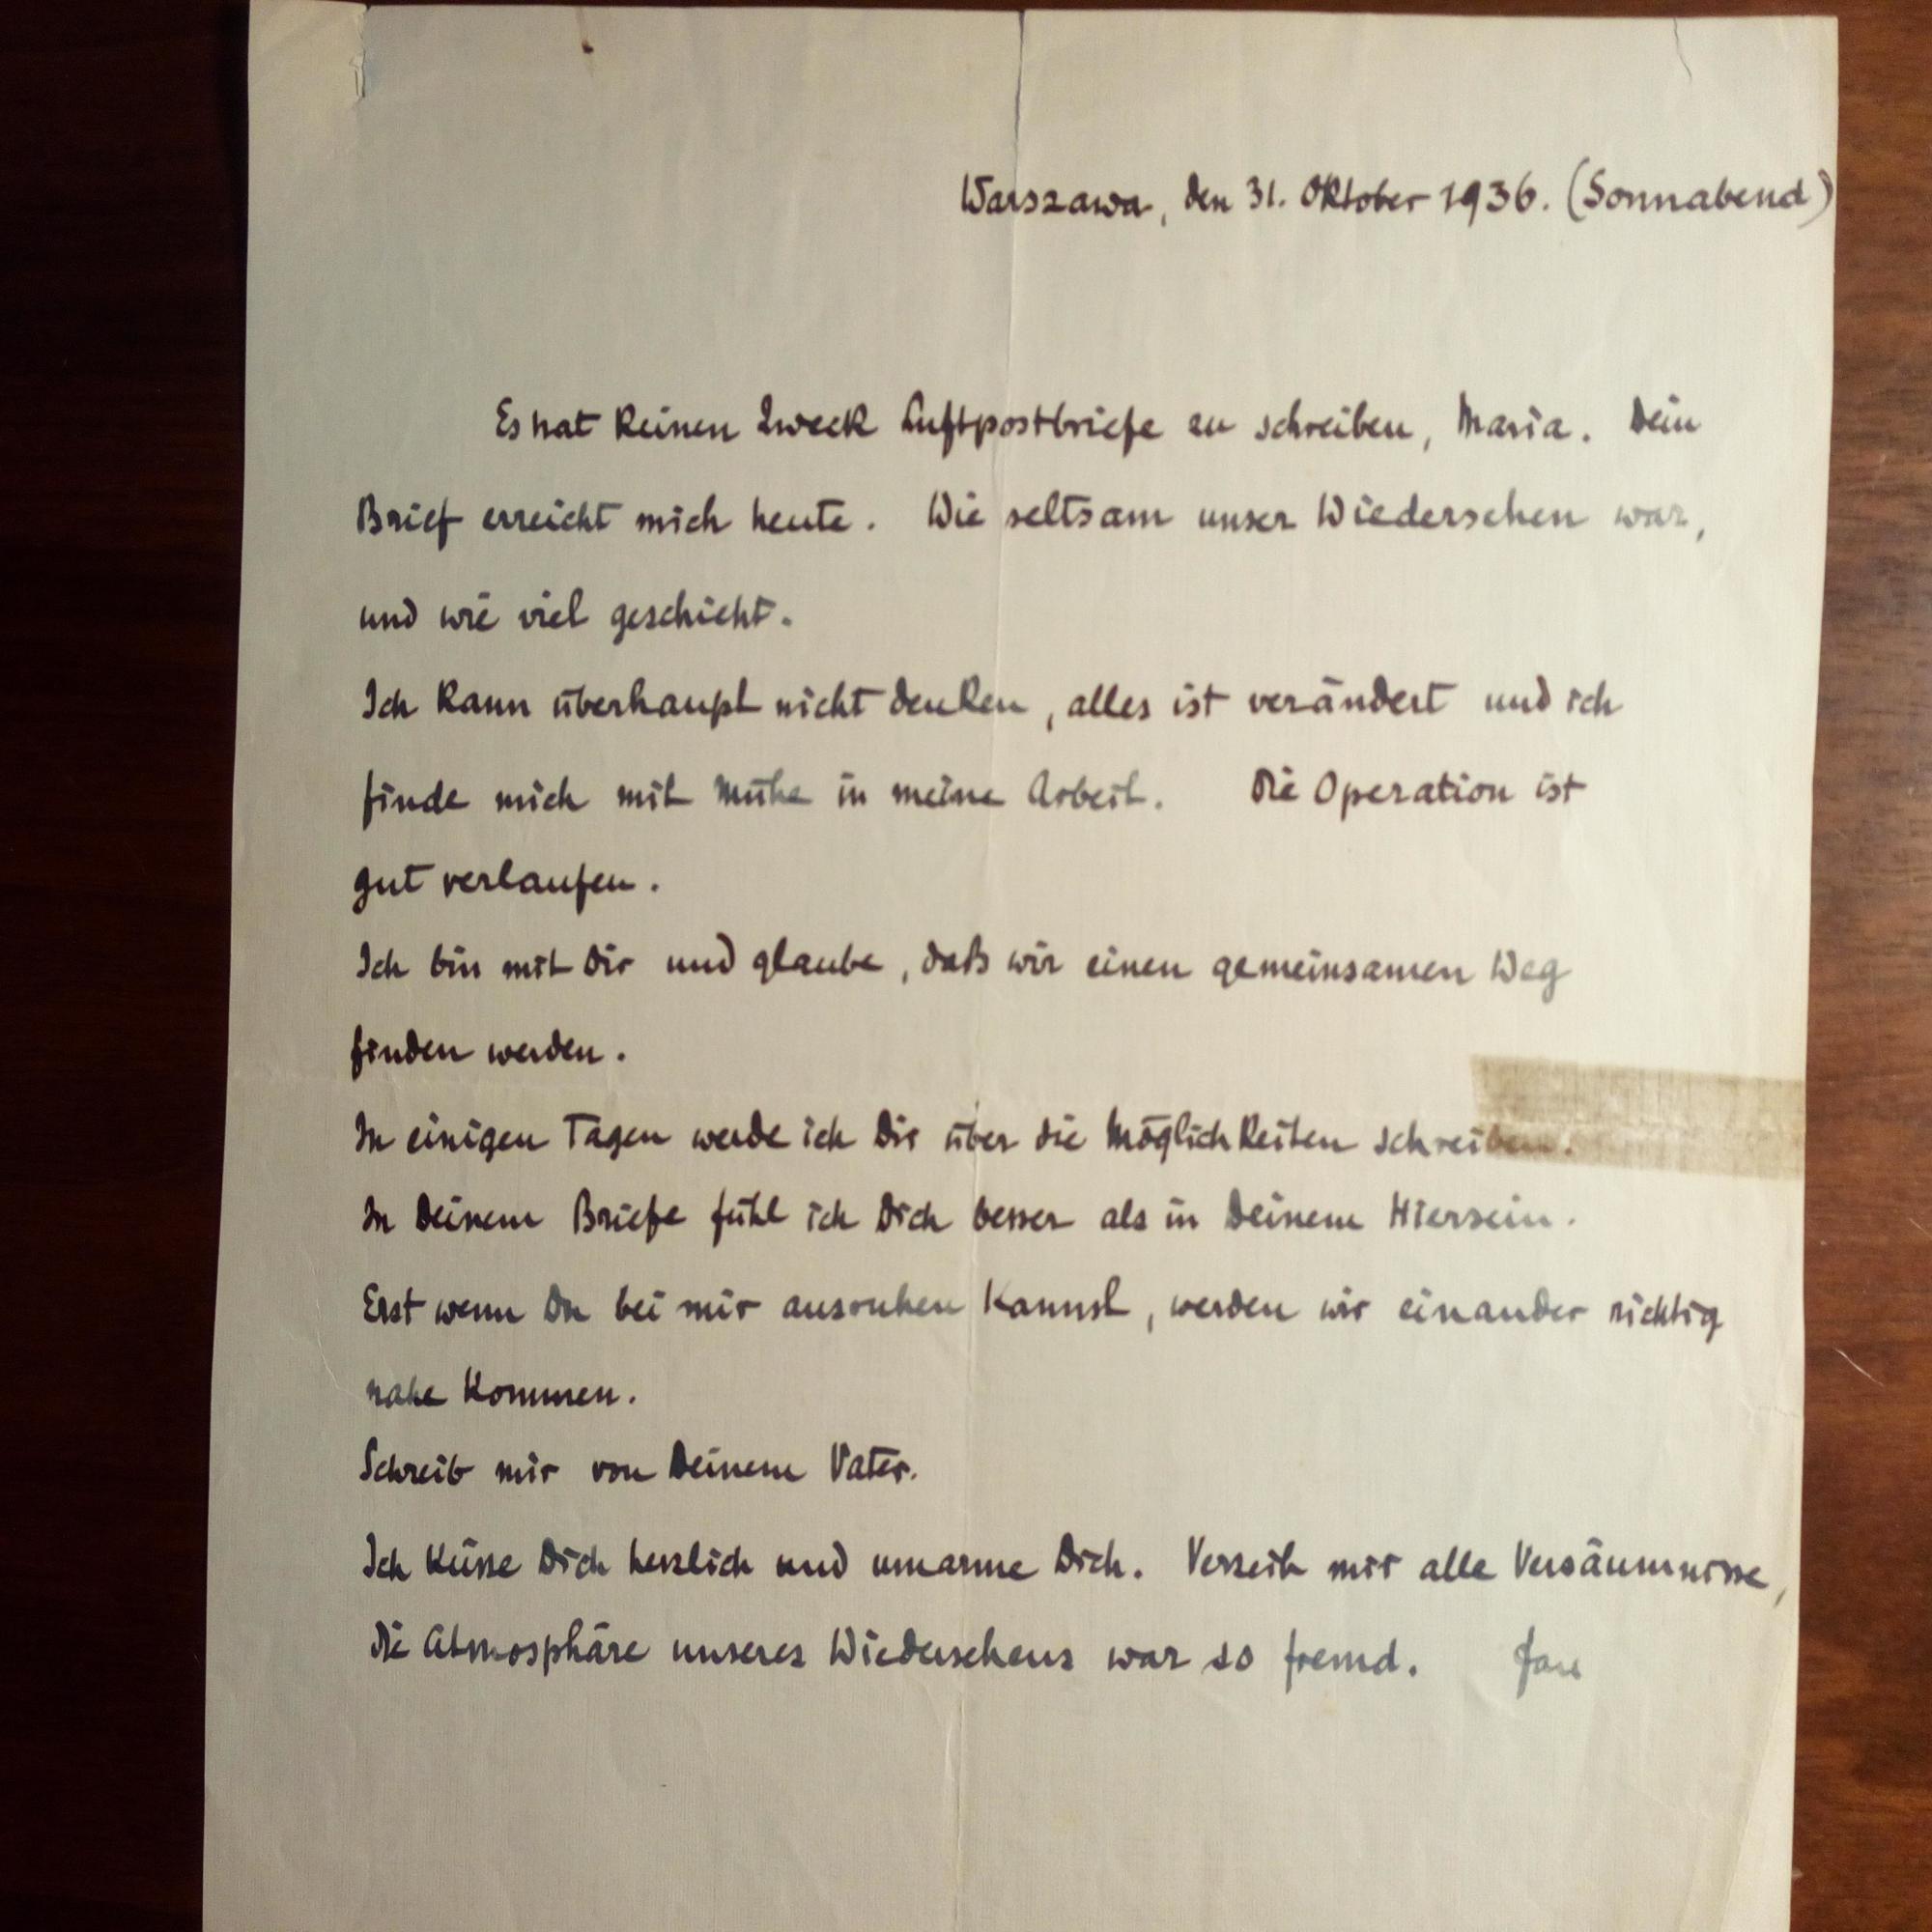 Warszawa, den 31. Oktober 1936. (Sonnabend)
Es hat keinen Zweck Luftpostbriefe zu schreiben, Maria. Dein
Brief erreicht mich heute. Wie seltsam unser Wiedersehen war,
und wie viel geschieht.
Ich kann überhaupt nicht denken, alles ist verändert und ich
finde mich mit Mühe in meine Arbeit. Die Operation ist
gut verlaufen.
Ich bin mit Dir und glaube, daß wir einen gemeinsamen Weg
finden werden.
In einigen Tagen werde ich Dir über die Möglichkeiten schreiben.
In Deinem Briefe fühl ich Dich besser als in Deinem Hiersein.
Erst wenn Du bei mir ausruhen kannst, werden wir einander richtig
nahe kommen.
Schreib mir von Deinem Vater.
Ich küsse Dich herzlich und umarme Dich. Verzeih mir alle Versäumnisse,
die Atmosphäre unseres Wiedersehens war so fremd.